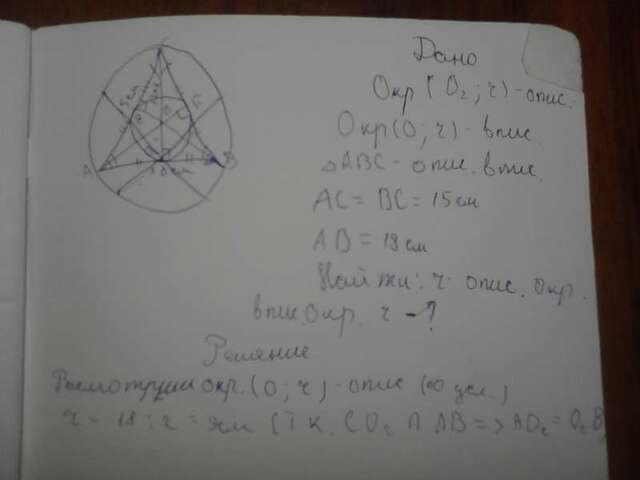 C
15см
F
A
B
18см
Дано
Окр (O₂; r) - опис.
Окр(O; r) - впис.
△ABC - опис. впис.
AC = BC = 15 см
AB = 18 см
Найти: r опис. окр.
впис. окр. r - ?
Решение
Рассмотрим окр. (O; r) - опис (по усл.)
r - 18 : 2 = 9см (Т.к. CO₂ ∩ AB => AO₂ = O₂B